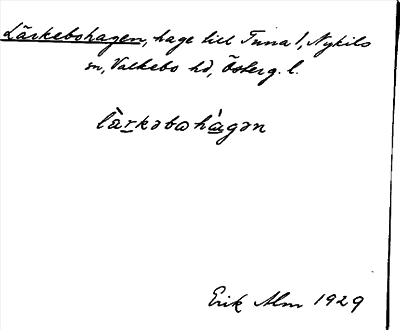 Lärkebohagen, hage till Tuna 1, Nykils
sn, Valkebo hd, Österg. l.
lärkəbωhágən
Erik Alm 1929